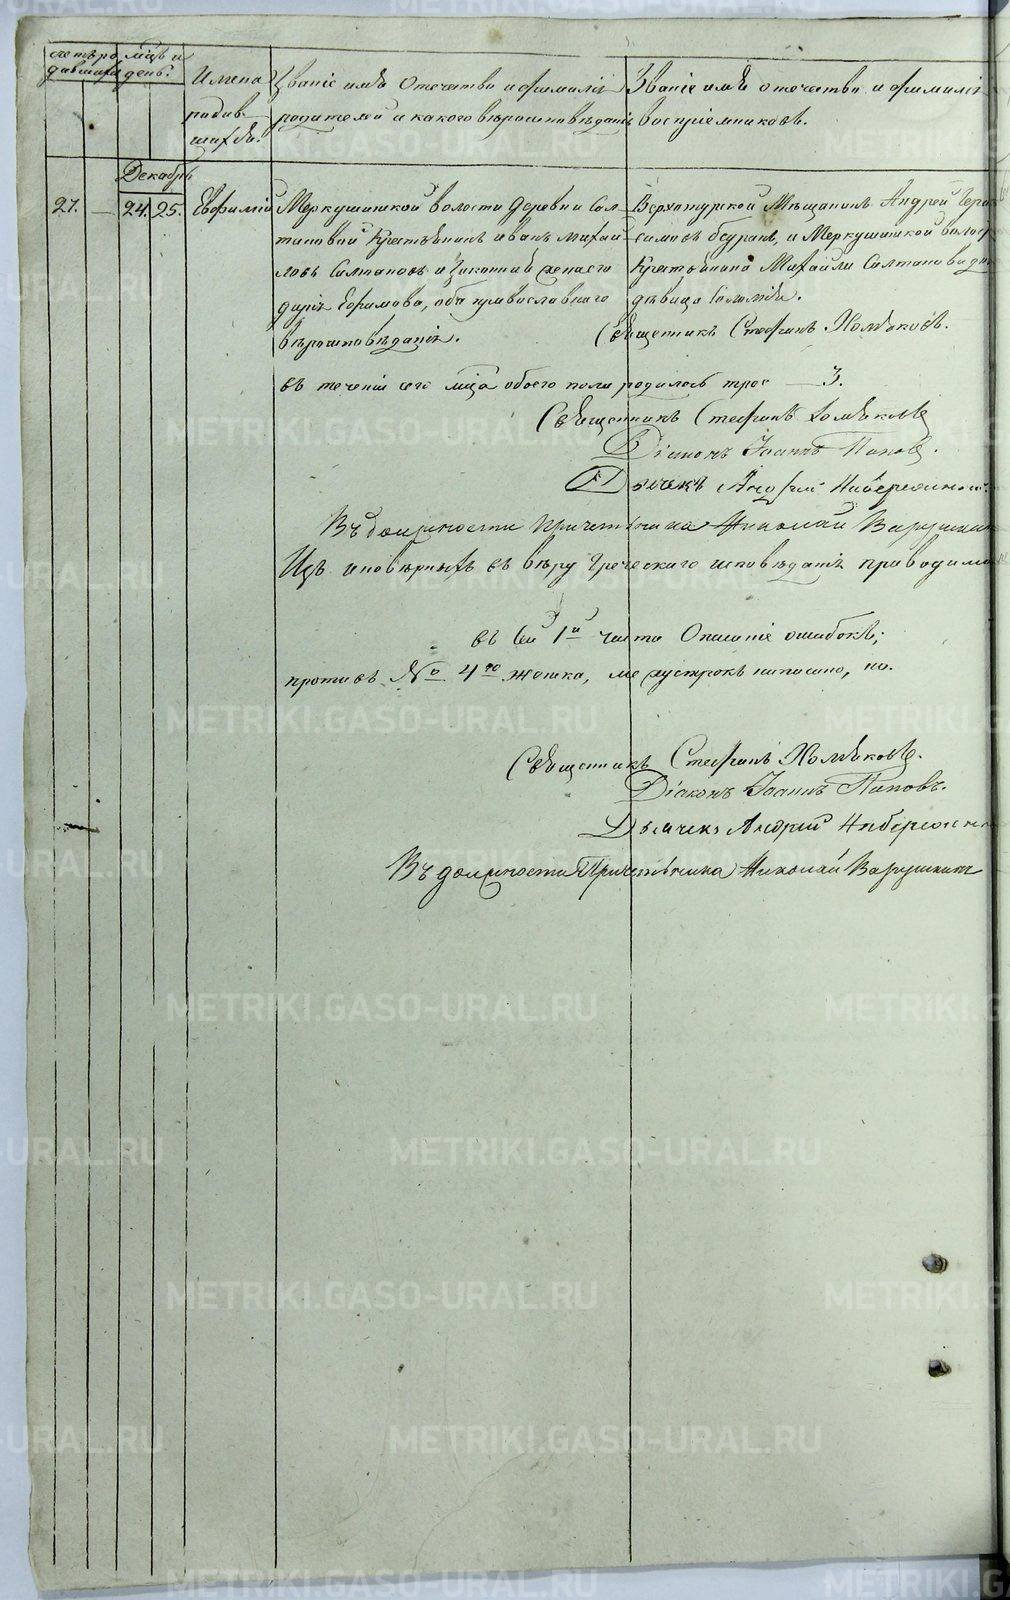 счетъ ро мѣц и
дившихъ день.
Имена
родив
шихся.
Званіе имя Отечество и фамилія
родителей и какого вѣроисповѣданія
Званіе имя отечество и фамилія
воспріемниковъ.
Декабрь
27. — 24. 25. Евфимій
Меркушинской волости деревни Сал
тановой Крестьянинъ Иванъ Михай
ловъ Салтановъ и Законная жена его
Дарья Ефимова, оба православнаго
вѣроисповѣданія.
Верхотурской Мѣщанинъ Андрей Гера
симовъ и Меркушинской волос
Крестьянина Михайла Салтанова до
дѣвица
Священникъ Стефанъ Хомяковъ.
въ теченіи сего мѣца обоего пола родилось трое — 3.
Священникъ Стефанъ Хомяковъ
Діаконъ Іоаннъ Поповъ.
Дьячекъ Андрей
Въ должности Причетника Николай
Изъ иновѣрныхъ въ вѣру Греческаго исповѣданія приводимо
въ сей 1й части Описание ошибокъ;
противъ № 4го
Священникъ Стефанъ Хомяковъ.
Діаконъ Іоаннъ Поповъ.
Дьячекъ Андрей
Въ должности Причетника Николай
METRIKI.GASO-URAL.RU